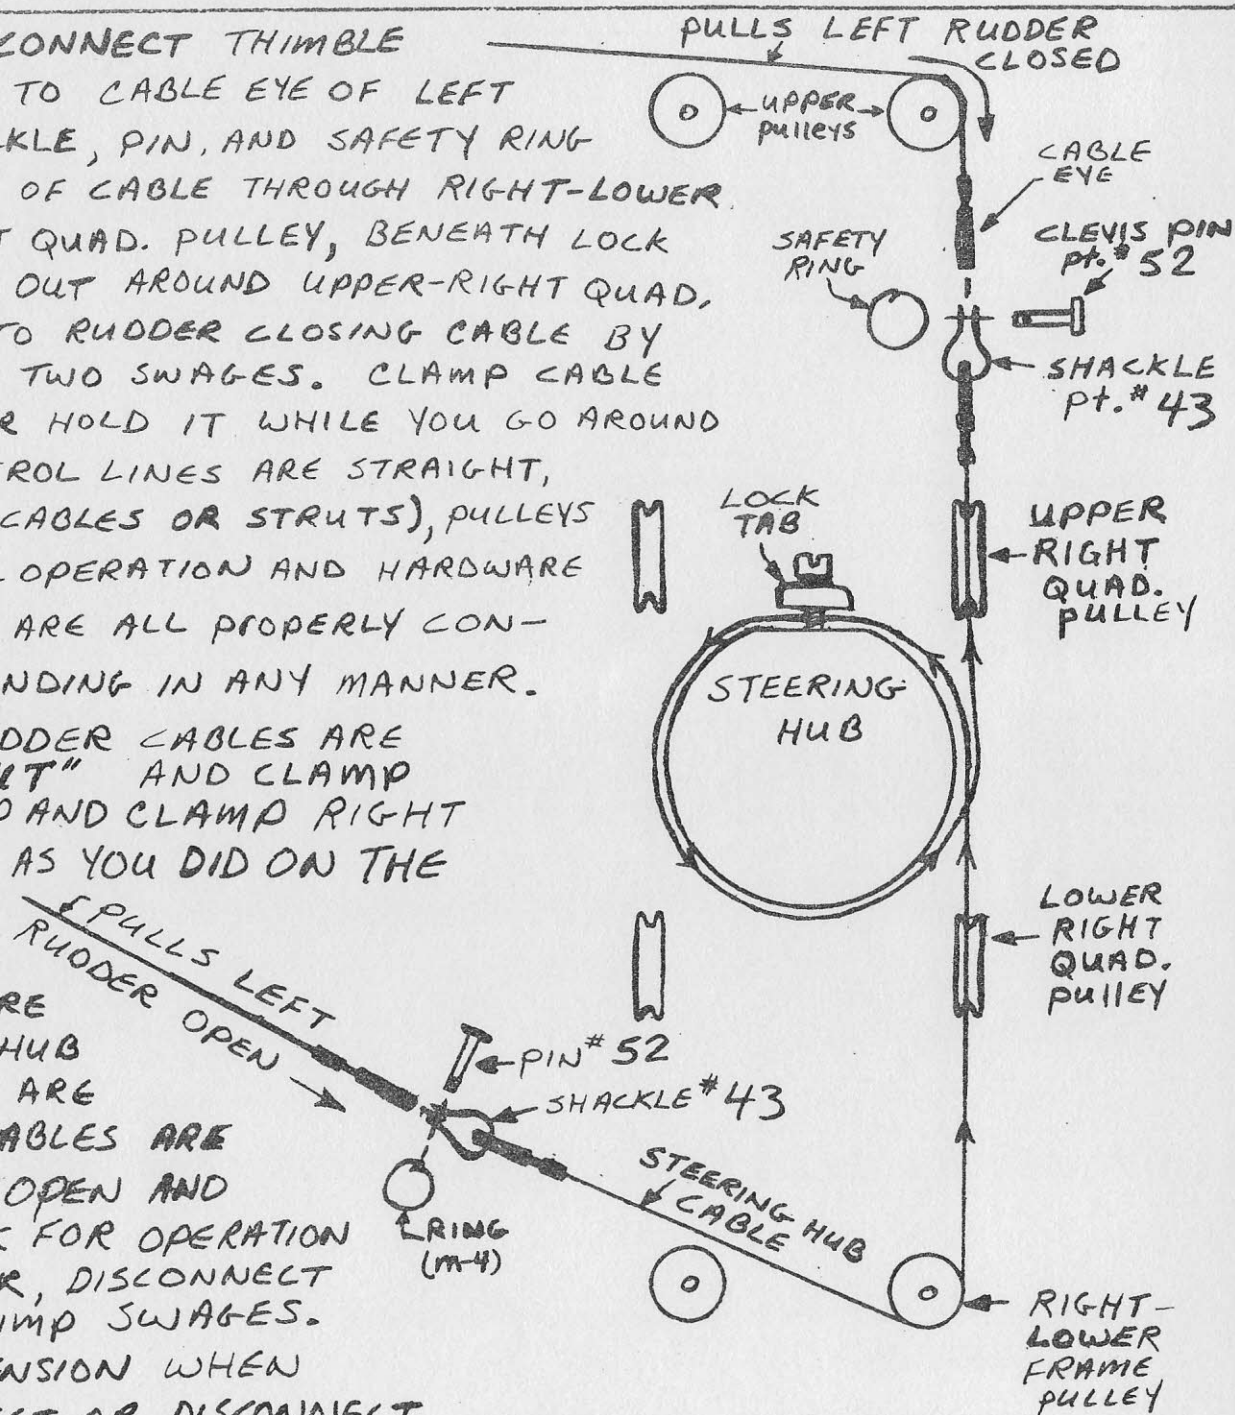 CONNECT THIMBLE
TO CABLE EYE OF LEFT
KLE, PIN, AND SAFETY RING
OF CABLE THROUGH RIGHT-LOWER
T QUAD. PULLEY, BENEATH LOCK
OUT AROUND UPPER-RIGHT QUAD.
TO RUDDER CLOSING CABLE BY
TWO SWAGES. CLAMP CABLE
R HOLD IT WHILE YOU GO AROUND
TROL LINES ARE STRAIGHT,
CABLES OR STRUTS), PULLEYS
L OPERATION AND HARDWARE
ARE ALL PROPERLY CON-
NDING IN ANY MANNER.
UDDER CABLES ARE
UT" AND CLAMP
P AND CLAMP RIGHT
AS YOU DID ON THE
RE
HUB
ARE
ABLES ARE
OPEN AND
K FOR OPERATION
R, DISCONNECT
IMP SWAGES.
ENSION WHEN
ECT OR DISCONNECT
PULLS LEFT RUDDER
CLOSED
UPPER
PULLEYS
CABLE
EYE
SAFETY
RING
CLEVIS PIN
pt.# 52
SHACKLE
pt.# 43
LOCK
TAB
UPPER
RIGHT
QUAD.
PULLEY
STEERING
HUB
LOWER
RIGHT
QUAD.
PULLEY
PULLS LEFT
RUDDER OPEN
PIN# 52
SHACKLE# 43
RING
(m-4)
STEERING HUB
CABLE
RIGHT-
LOWER
FRAME
PULLEY